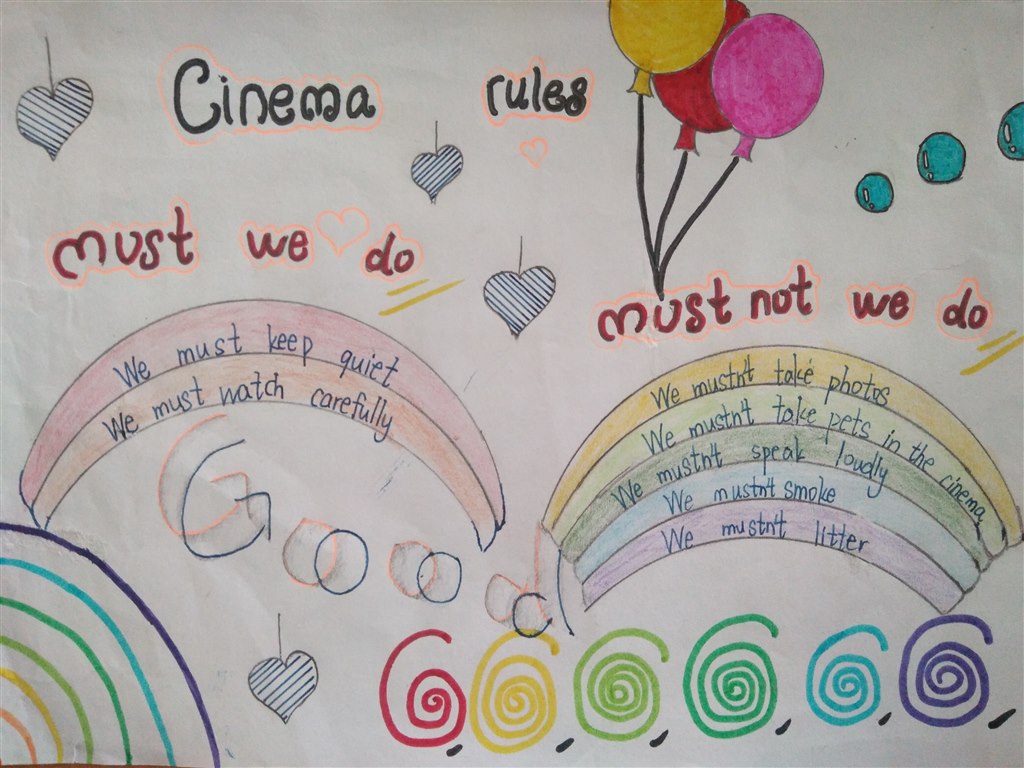 Cinema rules
must we do
must not we do
We must keep quiet
We must watch carefully
We mustn't take photos
We mustn't take pets in the cinema
We mustn't speak loudly
We mustn't smoke
We mustn't litter
Good